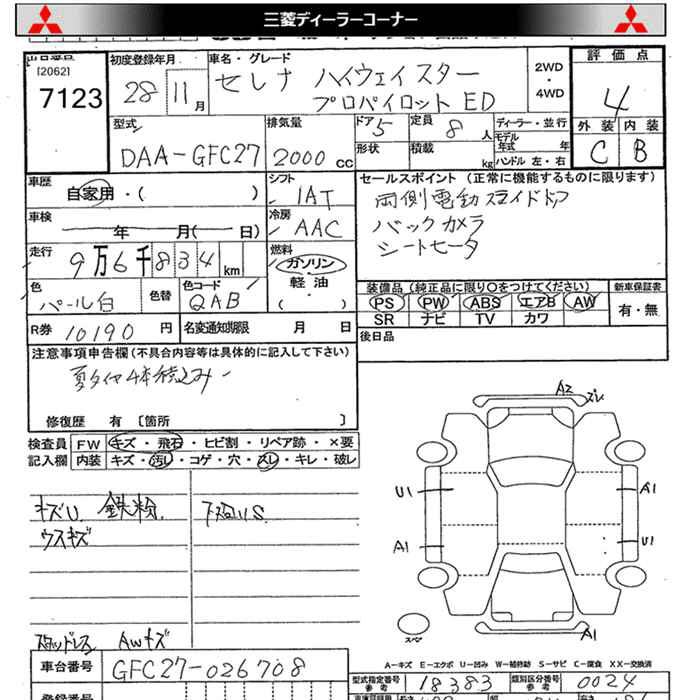 三菱ディーラーコーナー
出品番号
[2062]
7123
初度登録年月
28 11月
車名・グレード
セレナ ハイウェイスター
プロパイロット ED
2WD
・
4WD
評価点
4
外装 内装
C B
型式
DAA-GFC27
排気量
2000 cc
ドア 5
形状
定員 8 人
積載 kg
ディーラー・並行
モデル年式 年
ハンドル 左・右
車歴
自家用・( )
シフト
IAT
セールスポイント (正常に機能するものに限ります)
両側電動スライドドア
バックカメラ
シートヒータ
車検
年 月( 日)
冷房
AAC
走行
9万6千834km
燃料
ガソリン
軽油
・
( )
色
パール白
色替
色コード
QAB
装備品 (純正品に限り○をつけてください)
PS PW ABS エアB AW
SR ナビ TV カワ
新車保証書
有・無
R券 10190 円
名変通知期限 月 日
後日品
注意事項申告欄(不具合内容等は具体的に記入して下さい)
夏タイヤ4本積込み
修復歴 有 [箇所 ]
検査員 FW キズ・飛石・ヒビ割・リペア跡・×要
記入欄 内装 キズ・汚し・コゲ・穴・スレ・キレ・破レ
キズU 鉄粉
ウスキズ
下廻りS
スタッドレス AWキズ
A2 ズレ
U1 A1
A1 U1
スペア
A1
A-キズ E-エクボ U-凹み W-補修跡 S-サビ C-腐食 XX-交換済
車台番号 GFC27-026708
型式指定番号
参考
18383
類別区分番号
参考
0024
登録番号